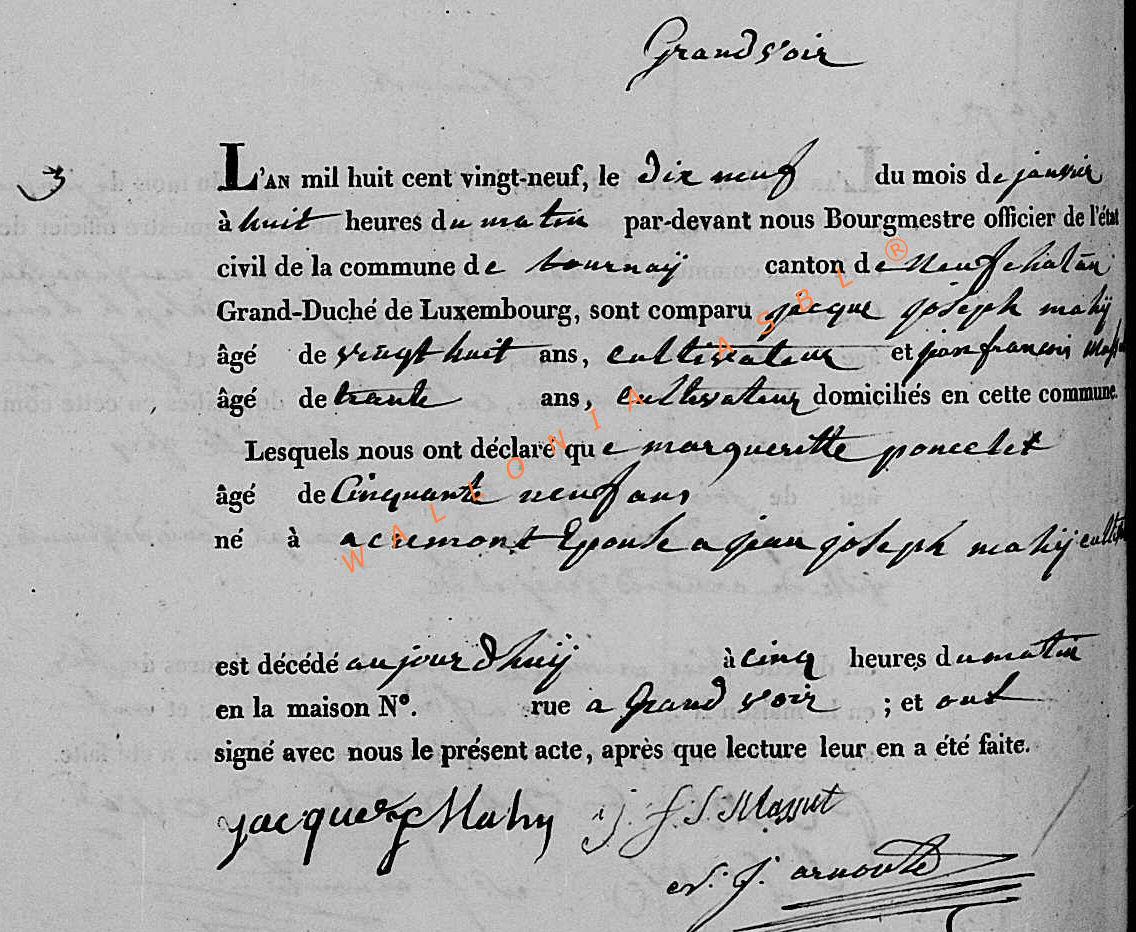 Grandvoir
3
L'AN mil huit cent vingt-neuf, le dix neuf du mois de janvier
à huit heures du matin par-devant nous Bourgmestre officier de l'état
civil de la commune de tournaÿ canton de Neufchatau
Grand-Duché de Luxembourg, sont comparu jacque joseph mahÿ
âgé de vingt huit ans, cultivateur et jean francois
âgé de trante ans, cultivateur domiciliés en cette commune.
Lesquels nous ont déclaré que margueritte poncelet
âgé de Cinquante neuf ans
né à acremont Epouse a jean joseph mahÿ
est décédé aujourdhuÿ à cinq heures du matin
en la maison N°. rue a Grand voir ; et ont
signé avec nous le présent acte, après que lecture leur en a été faite.
jacques Mahy j. f. J. Massut
J. arnould
WALLONIA ASBL ®